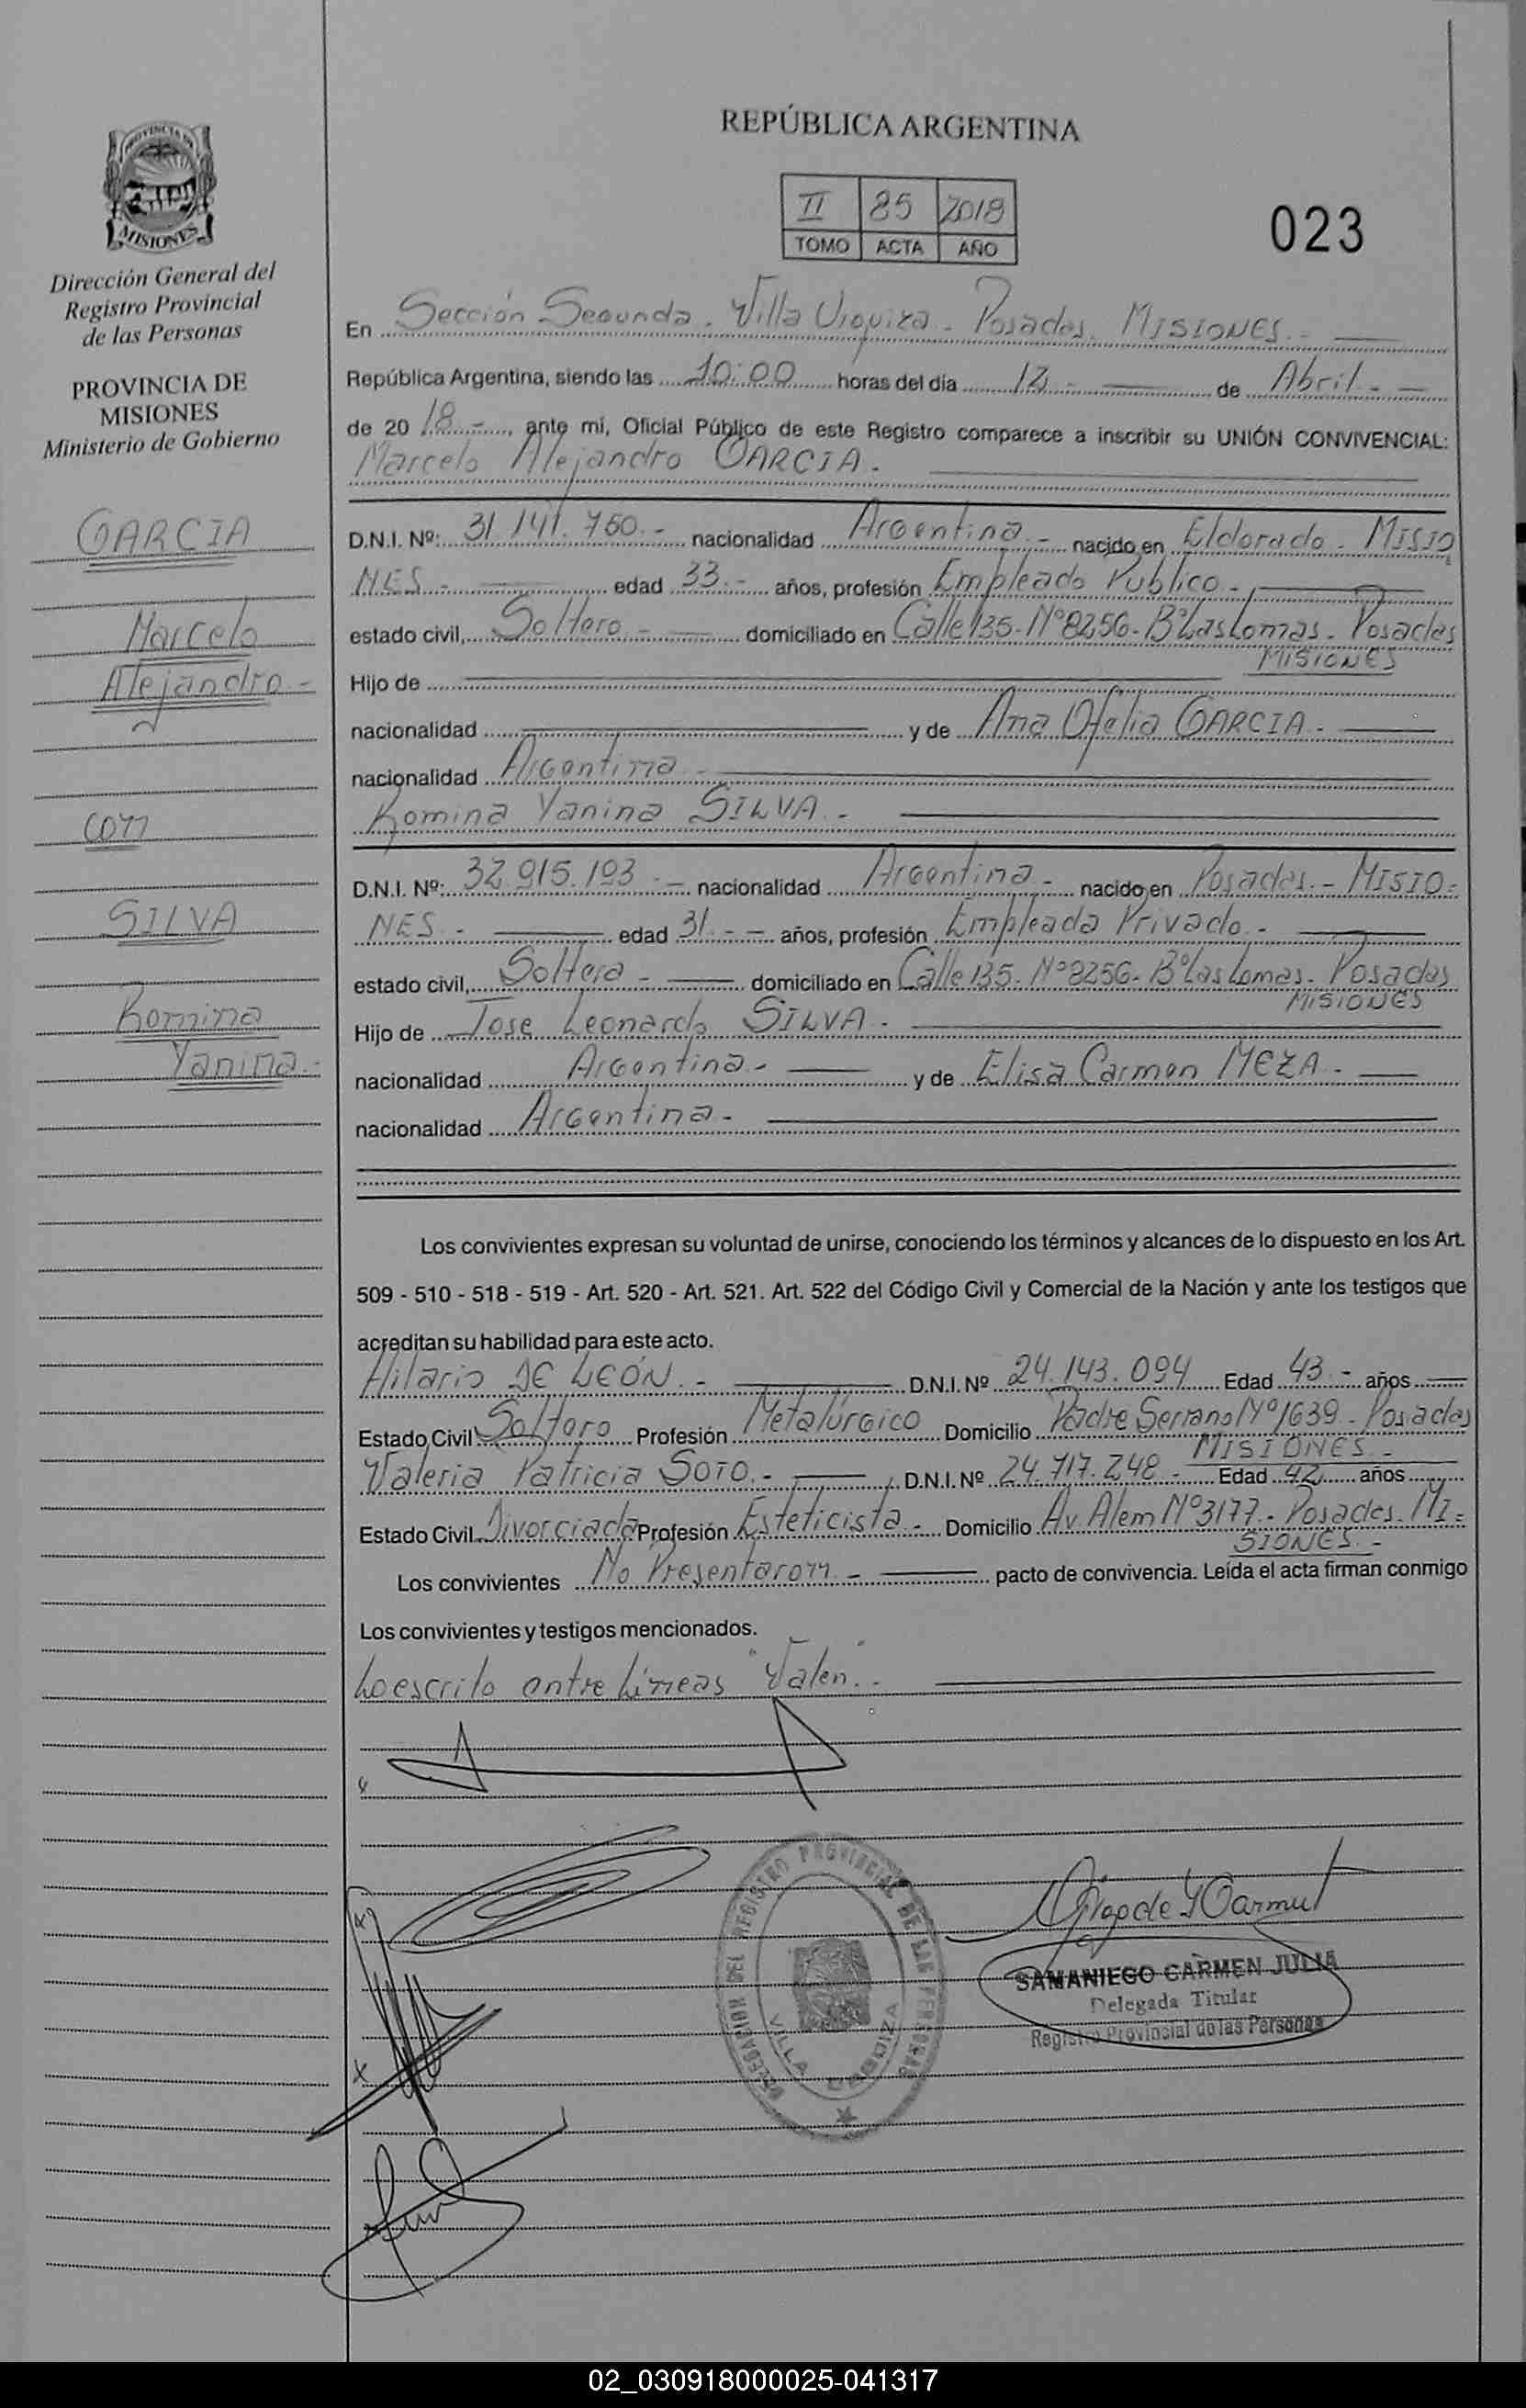 REPÚBLICA ARGENTINA
II 85 2018
TOMO ACTA AÑO
023
PROVINCIA DE
MISIONES
Dirección General del
Registro Provincial
de las Personas
PROVINCIA DE
MISIONES
Ministerio de Gobierno
GARCIA
Marcelo
Alejandro -
con
SILVA
Romina
Yanina.-
En Sección Segunda. Villa Urquiza - Posadas. MISIONES.-
República Argentina, siendo las 10:00 horas del día 12 - de Abril -
de 2018 -, ante mí, Oficial Público de este Registro comparece a inscribir su UNIÓN CONVIVENCIAL:
Marcelo Alejandro GARCIA.
D.N.I. Nº: 31.141.760.- nacionalidad Argentina - nacido en Eldorado - MISIO
NES - edad 33.- años, profesión Empleado Publico -
estado civil, Soltero - domiciliado en Calle 135-Nº8256-BºLasLomas. Posadas
MISIONES
Hijo de
nacionalidad y de Ana Ofelia GARCIA.
nacionalidad Argentina -
Romina Yanina SILVA.-
D.N.I. Nº: 32.915.193.- nacionalidad Argentina - nacido en Posadas.- MISIO-
NES - edad 31.- - años, profesión Empleada Privado.-
estado civil, Soltera - domiciliado en Calle 135. Nº8256-BºLasLomas. Posadas
MISIONES
Hijo de Jose Leonardo SILVA -
nacionalidad Argentina.- y de Elisa Carmen MEZA.-
nacionalidad Argentina -
Los convivientes expresan su voluntad de unirse, conociendo los términos y alcances de lo dispuesto en los Art.
509 - 510 - 518 - 519 - Art. 520 - Art. 521. Art. 522 del Código Civil y Comercial de la Nación y ante los testigos que
acreditan su habilidad para este acto.
Hilario DE LEÓN.- D.N.I. Nº 24.143.094 Edad 43.- años
Estado Civil Soltero Profesión Metalúrgico Domicilio Padre Serrano Nº1639 - Posadas
MISIONES -
Valeria Patricia SOTO.- D.N.I. Nº 24.717.248 - Edad 42 años
Estado Civil Divorciada Profesión Esteticista - Domicilio Av. Alem Nº3177.- Posadas. MI-
SIONES.-
Los convivientes No Presentaron - pacto de convivencia. Leída el acta firman conmigo
Los convivientes y testigos mencionados.
Lo escrito entre Líneas "Valen".-
DELEGACION DEL REGISTRO PROVINCIAL DE LAS PERSONAS
VILLA URQUIZA
SAMANIEGO CARMEN JULIA
Delegada Titular
Registro Provincial de las Personas
02_030918000025-041317